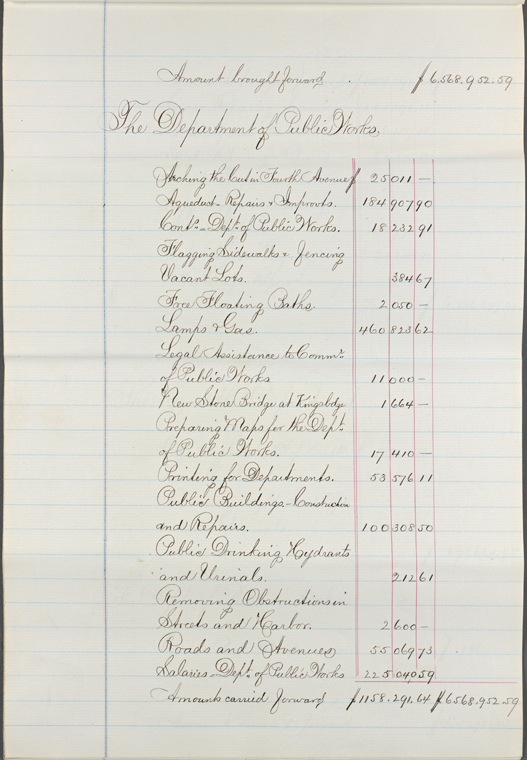 Amount brought forward $ 6.568.952.59
The Department of Public Works,
Arching the Cut in Fourth Avenue $ 25 011 —
Aqueduct - Repairs & Improvts. 184 907 90
Conts. - Dept. of Public Works. 18 232 91
Flagging Sidewalks & Fencing
Vacant Lots. 384 67
Free Floating Baths. 2 050 —
Lamps & Gas. 460 823 62
Legal Assistance to Commr.
of Public Works 11 000 —
New Stone Bridge at Kingsbdge 1 664 —
Preparing Maps for the Dept.
of Public Works. 17 410 —
Printing for Departments. 53 576 11
Public Buildings - Construction
and Repairs. 100 308 50
Public Drinking Hydrants
and Urinals. 212 61
Removing Obstructions in
Streets and Harbor. 2 600 —
Roads and Avenues 55 069 73
Salaries - Dept. of Public Works 225 040 59
Amounts carried forward $1158.291.64 $6568.952.59